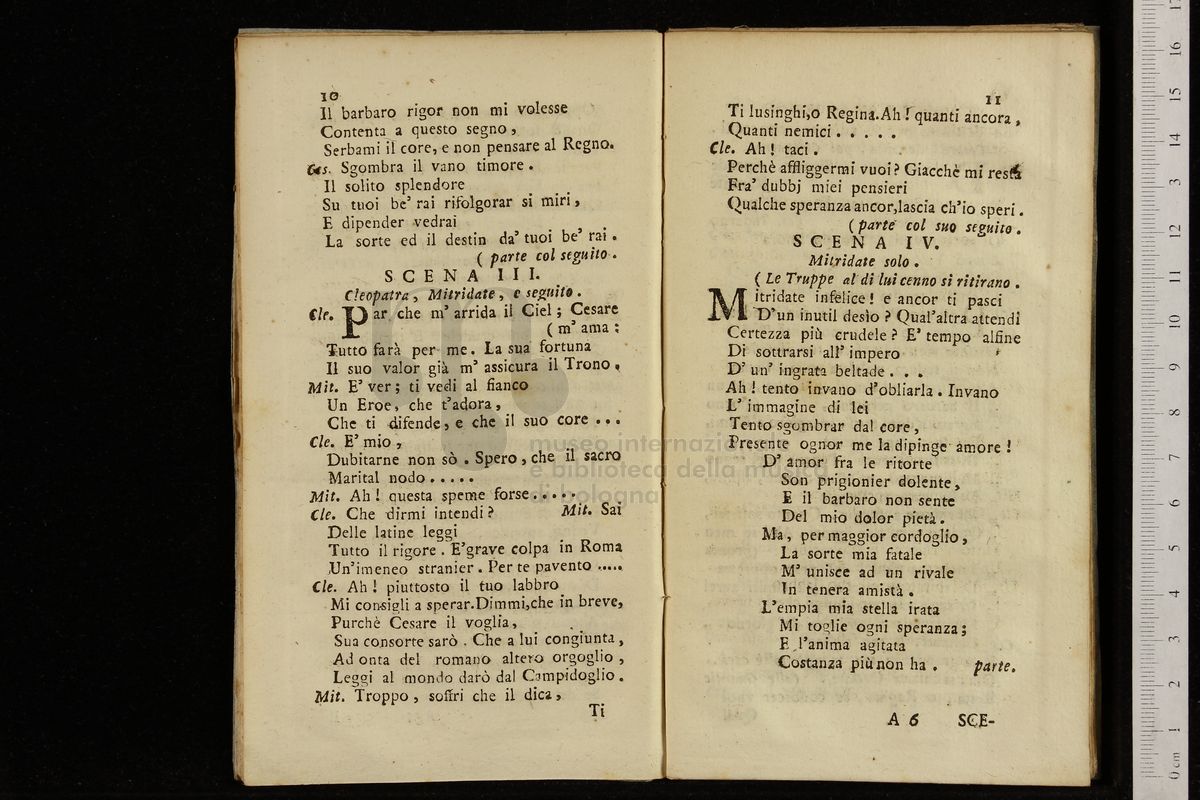 10
Il barbaro rigor non mi volesse
Contenta a questo segno,
Serbami il core, e non pensare al Regno.
Ces. Sgombra il vano timore.
Il solito splendore
Su tuoi be' rai rifolgorar si miri,
E dipender vedrai
La sorte ed il destin da' tuoi be' rai.
( parte col seguito.
SCENA III.
Cleopatra, Mitridate, e seguito.
Cle. Par che m' arrida il Ciel; Cesare
( m' ama:
Tutto farà per me. La sua fortuna
Il suo valor già m' assicura il Trono.
Mit. E' ver; ti vedi al fianco
Un Eroe, che t'adora,
Che ti difende, e che il suo core ...
Cle. E' mio,
Dubitarne non sò. Spero, che il sacro
Marital nodo.....
Mit. Ah! questa speme forse.....
Cle. Che dirmi intendi? Mit. Sai
Delle latine leggi
Tutto il rigore. E'grave colpa in Roma
Un'imeneo stranier. Per te pavento .....
Cle. Ah! piuttosto il tuo labbro
Mi consigli a sperar. Dimmi, che in breve,
Purchè Cesare il voglia,
Sua consorte sarò. Che a lui congiunta,
Ad onta del romano altero orgoglio,
Leggi al mondo darò dal Campidoglio.
Mit. Troppo, soffri che il dica,
Ti
11
Ti lusinghi, o Regina. Ah! quanti ancora,
Quanti nemici.....
Cle. Ah! taci.
Perchè affliggermi vuoi? Giacchè mi resta
Fra' dubbj miei pensieri
Qualche speranza ancor, lascia ch'io speri.
( parte col suo seguito.
SCENA IV.
Mitridate solo.
( Le Truppe al di lui cenno si ritirano.
Mitridate infelice! e ancor ti pasci
D'un inutil desìo? Qual'altra attendi
Certezza più crudele? E' tempo alfine
Di sottrarsi all' impero
D' un' ingrata beltade...
Ah! tento invano d'obliarla. Invano
L' immagine di lei
Tento sgombrar dal core,
Presente ognor me la dipinge amore!
D' amor fra le ritorte
Son prigionier dolente,
E il barbaro non sente
Del mio dolor pietà.
Ma, per maggior cordoglio,
La sorte mia fatale
M' unisce ad un rivale
In tenera amistà.
L'empia mia stella irata
Mi toglie ogni speranza;
E l'anima agitata
Costanza più non ha. parte.
A 6 SCE-
museo internazionale
e biblioteca della musica
di bologna
0 cm 1 2 3 4 5 6 7 8 9 10 11 12 13 14 15 16 17